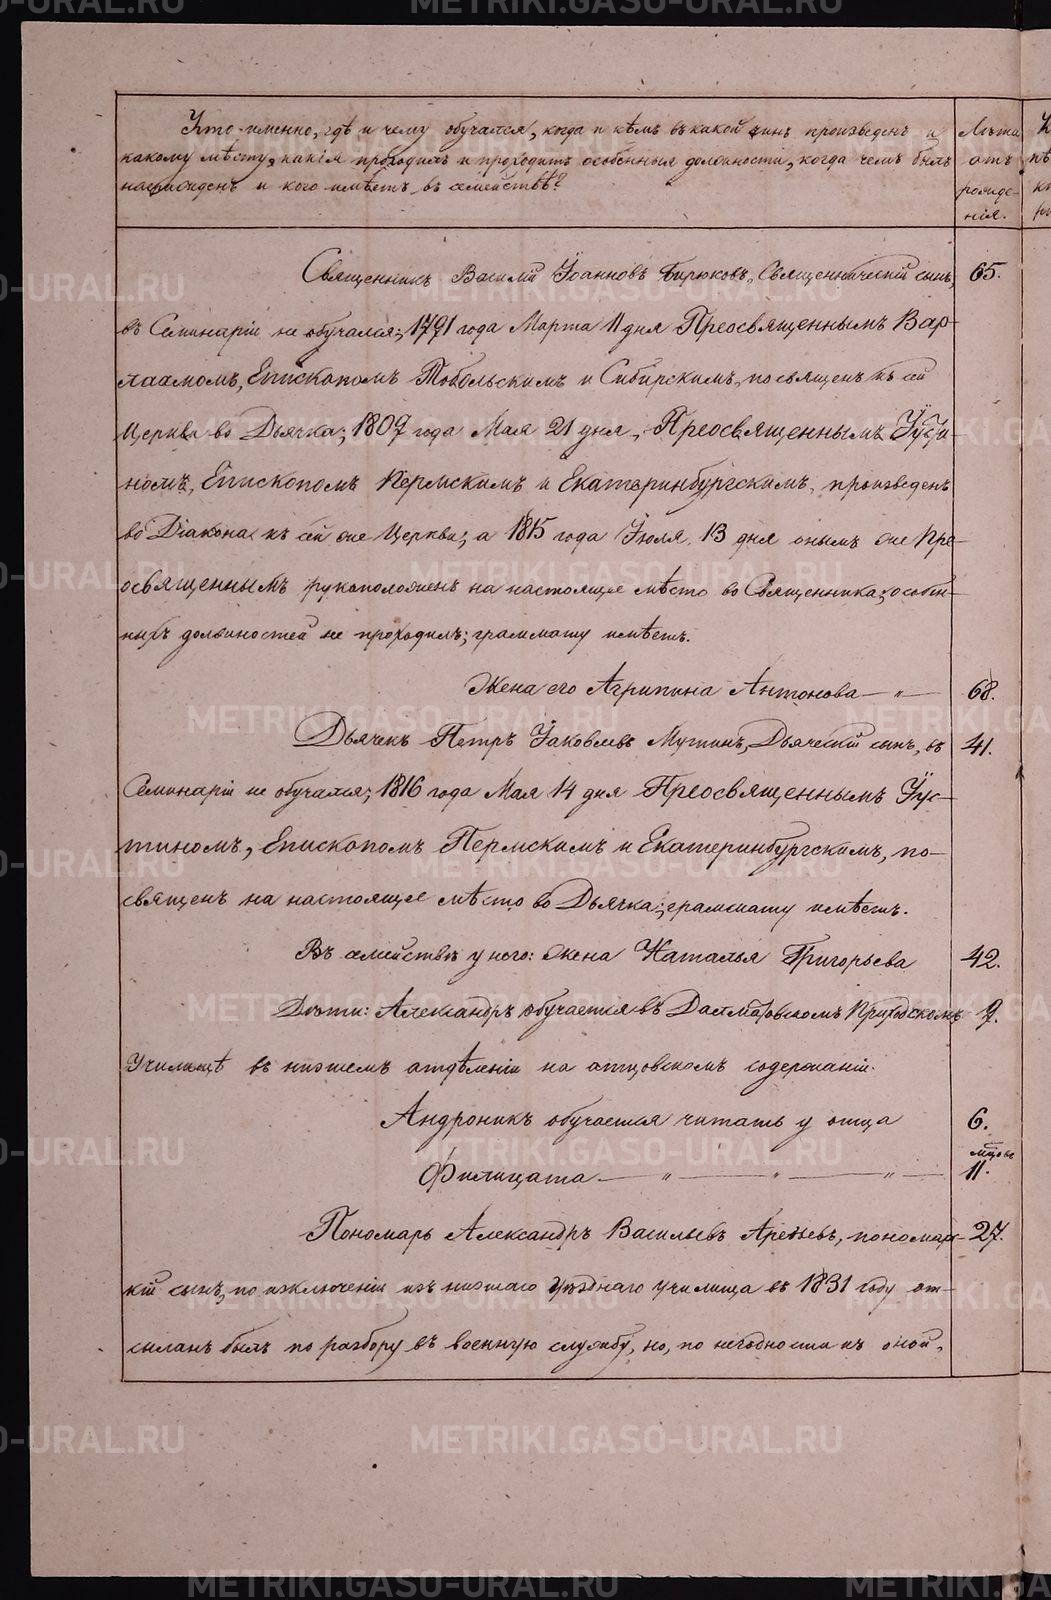 Кто именно, где и чему обучался, когда и кемъ въ какой чинъ произведенъ и
какому мѣсту, какія проходилъ и проходитъ особенныя должности, когда чемъ былъ
награжденъ и кого имѣетъ въ семействѣ?
Лѣта
отъ
рожде-
нія.
Священникъ Василій Іоанновъ Бирюковъ, Священническій сынъ,
65.
въ Семинаріи не обучался; 1791 года Марта 11 дня Преосвященнымъ Вар-
лаамомъ, Епископомъ Тобольскимъ и Сибирскимъ, посвященъ къ сей
Церкви во Дьячка; 1809 года Мая 21 дня, Преосвященнымъ Іусти-
номъ, Епископомъ Пермскимъ и Екатеринбургскимъ, произведенъ
во Діакона къ сей же Церкви; а 1815 года Іюля 13 дня онымъ же Пре-
освященнымъ рукоположенъ на настоящее мѣсто во Священника; особен-
ныхъ должностей не проходилъ; грамоту имѣетъ.
Жена его Агрипина Антонова — „ —
68.
Дьячекъ Петръ Іаковлевъ Мутинъ, Дьяческій сынъ, въ
41.
Семинаріи не обучался; 1816 года Мая 14 дня Преосвященнымъ Іус-
тиномъ, Епископомъ Пермскимъ и Екатеринбургскимъ, по-
священъ на настоящее мѣсто во Дьячка; грамоту имѣетъ.
Въ семействѣ у него: жена Наталья Григорьева
42.
Дѣти: Александръ обучается въ Далматовскомъ Приходскомъ
9.
Училищѣ въ низшемъ отдѣленіи на отцовскомъ содержаніи.
Андроникъ обучается читать у отца
6.
мѣсяцовъ
Филицата — „ — „ — „ —
11.
Пономарь Александръ Васильевъ Арефьевъ, пономар-
27.
скій сынъ, по изключеніи изъ низшаго уѣзднаго училища въ 1831 году от-
сыланъ былъ по разбору въ военную службу, но, по негодности къ оной,
METRIKI.GASO-URAL.RU